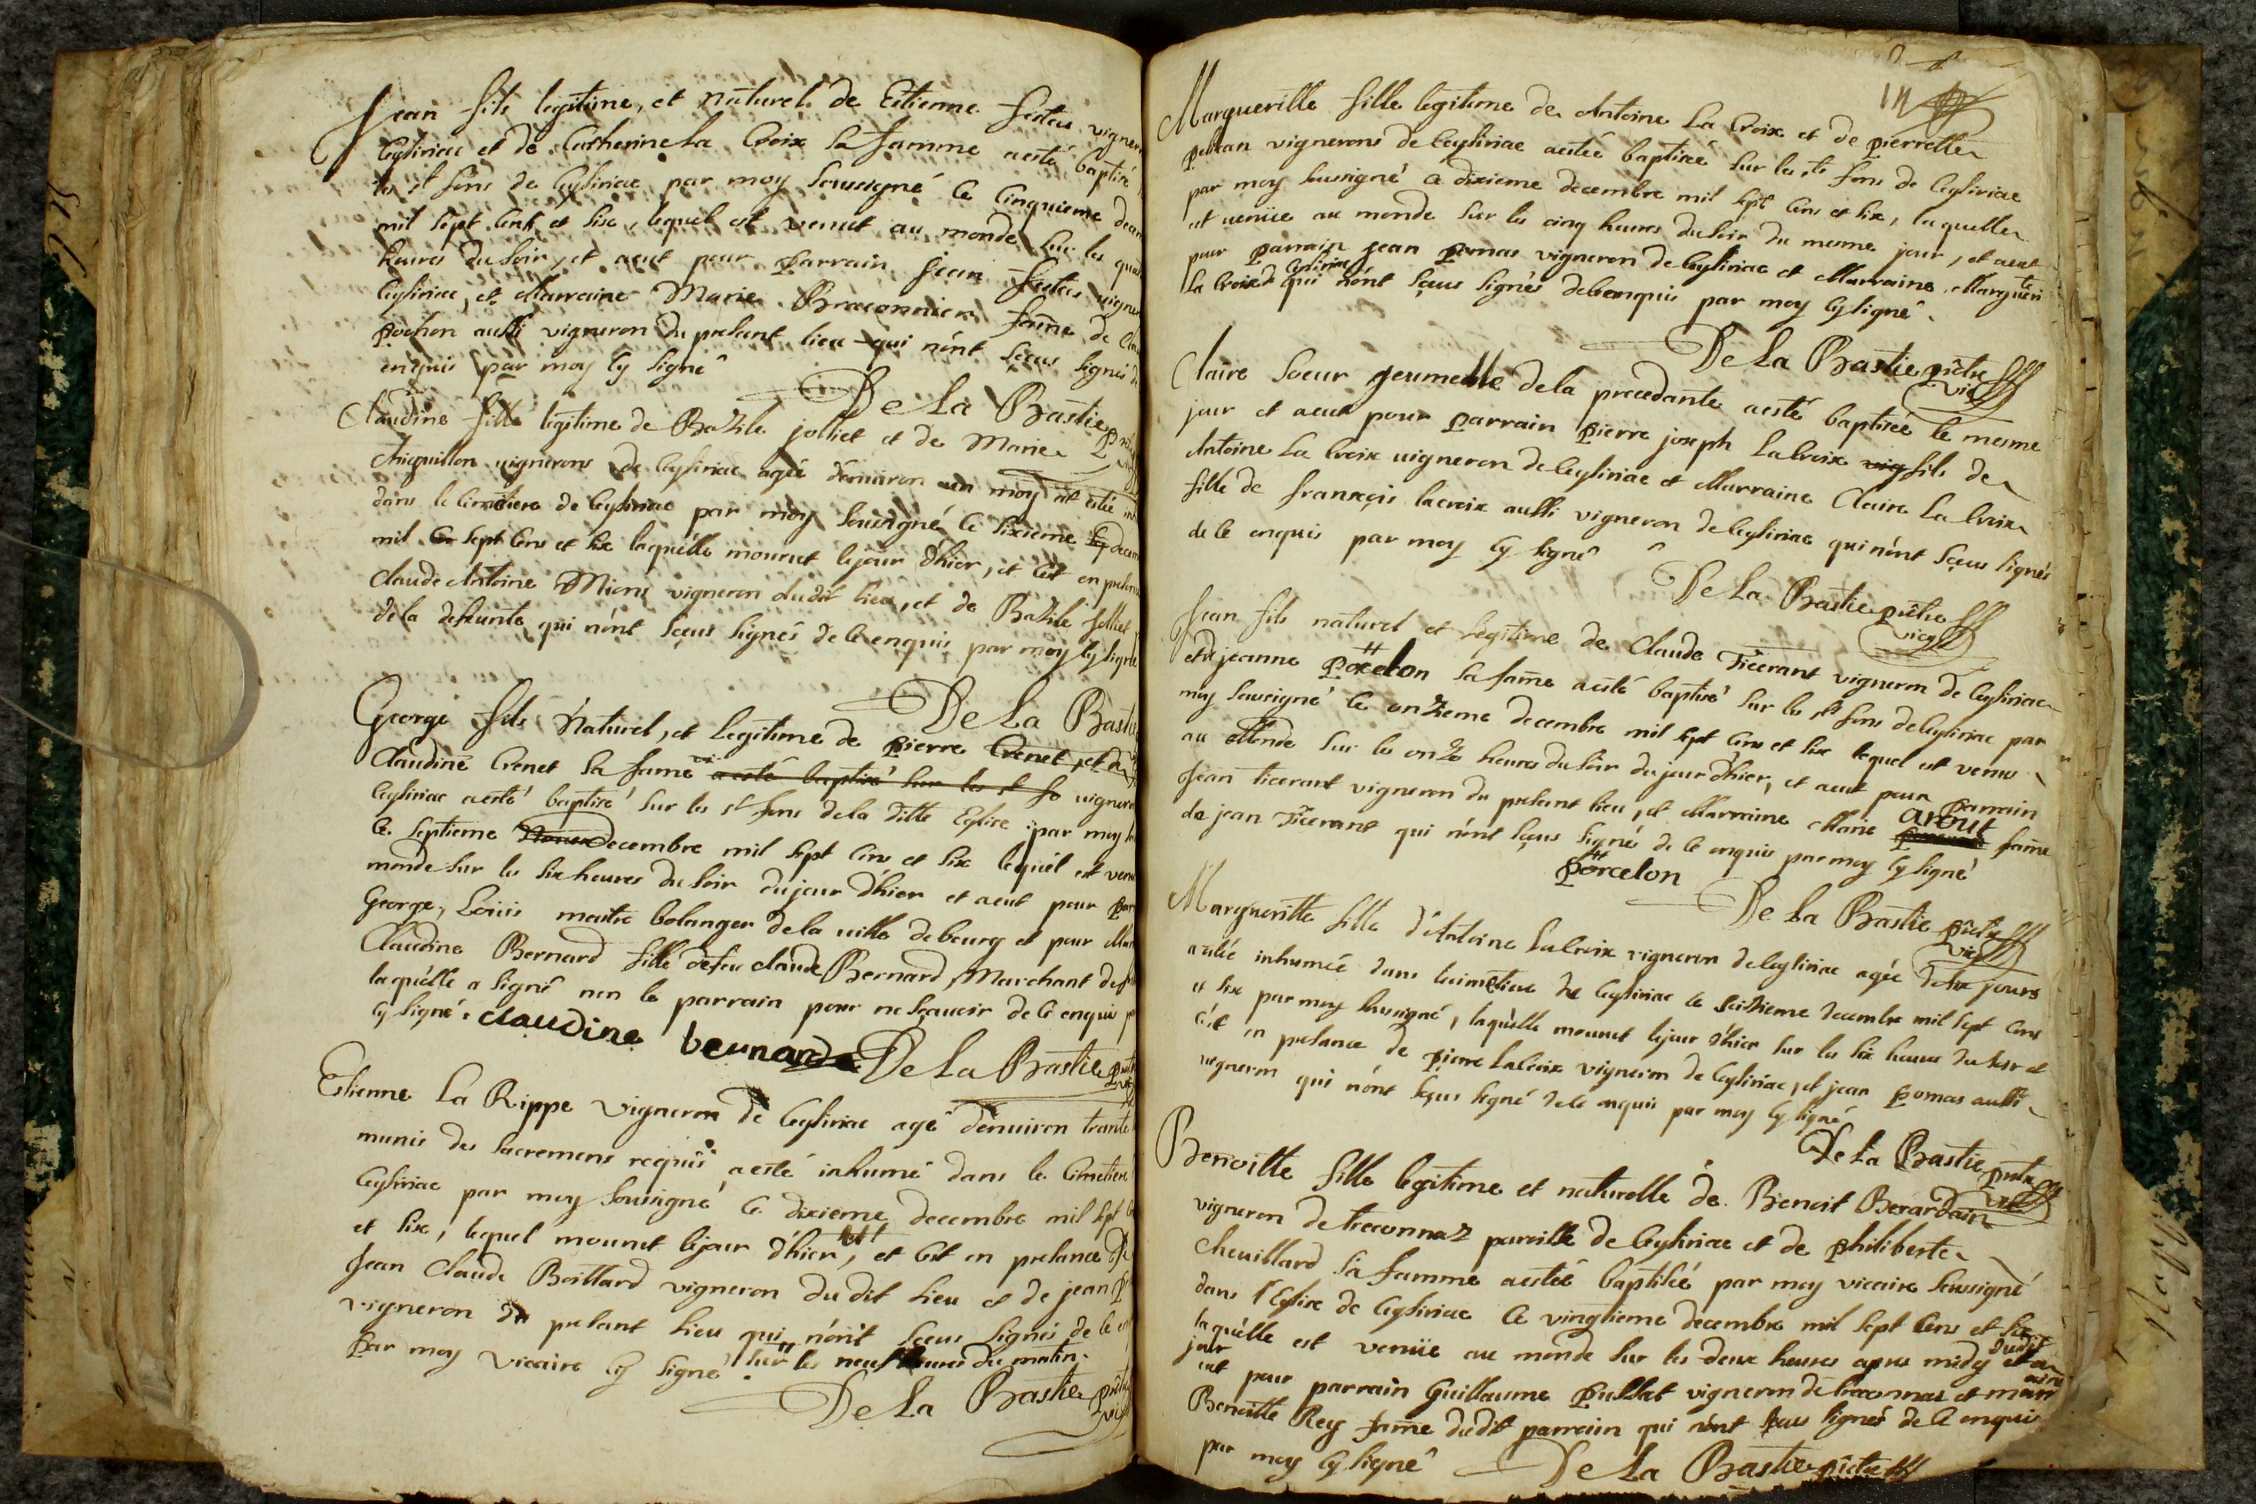 Jean fils legitime, et naturel de Etienne festeu vigner
Ceyseriac et de Catherine La Croix sa famme aesté baptisé
les st fons de Ceyseriac par moy soussigné le cinquieme decem
mil sept cens et six, lequel est venut au monde sur les quat
heures du soir, et aeut pour parrain Jean festeu vigner
Ceyseriac, et Marraine Marie Braconnier fame de Clau
pochon aussi vigneron du presant lieu qui nónt sceus signés de
enquis par moy cy signé
De La Bastie prêtre
Claudine fille legitime de Bazile jolliet et de Marie
Chiquillon vignerons de Ceyseriac agée dénviron un moy at estée inh
dans le cimetiere de Ceyseriac par moy soussigné le sixieme decem
mil sept cens et six laquélle mourut lejour d'hier, et cét en presence
Claude Antoine Miens vigneron dudit lieu, et de Bazile Jolliet
de la defunte, qui nónt sceus signés de ce enquis par moy cy signé
De La Bastie
George fils Naturel, et Legitime de pierre Crenet, et de
Claudine Crenet sa fame aesté baptisé sur les st fo vigneron
Ceyseriac aesté baptisé sur les st fons dela ditte Eglise par moy
le septieme Novem decembre mil sept cens et six lequél est venu
monde sur les six heures du soir dujour d'hier et aeut pour par
George, Louis maitre bolanger dela ville debourg et pour Mar
Claudine Bernard fille defeu claude Bernard, Marchant de
laquélle a signé non le parrain pour ne sçavoir de ce enquis
cy signé. claudine bernarde De La Bastie
Estienne La Rippe vigneron de Ceyseriac agé dénviron trante
munis des sacremens requis aesté inhumé dans le Cimetiere
Ceyseriac par moy soussigné le dixieme decembre mil sept
et six, lequel mourut lejour d'hier, et cét en presance de
Jean Claude Boillard vigneron du dit lieu et de jean
vigneron du presant lieu qui nónt sceus signés de ce
par moy vicaire cy signé sur les neuf heures du matin.
De La Bastie prêtre
Margueritte fille legitime de Antoine La Croix et de pierrette
pelban vignerons de Ceyseriac aestée baptisée sur les sts fons de Ceyseriac
par moy sussigné le dixieme decembre mil sept cens et six, laquelle
est venüe au monde sur les cinq heures du soir du mesme jour, et aeut
pour parrain jean pomas vigneron de Ceyseriac et Marraine Margueritte
La Croix de Ceyseriac qui nónt sceus signés deceenquis par moy cy signé
De La Bastie prêtre vic
Claire soeur jeumelle dela precedante aesté baptisée le mesme
jour et aeut pour parrain pierre joseph La Croix vig fils de
Antoine La Croix vigneron de Ceyseriac et Marraine Claire La Croix
fille de françois lacroix aussi vigneron de Ceyseriac qui nónt sceus signés
de ce enquis par moy cy signé
De La Bastie prêtre vic
Jean fils naturel et Legitime de Claude Ticerant vigneron de Ceyseriac
et de jeanne porcelon sa fame aesté baptisé sur les st fons de Ceyseriac par
moy soussigné le onzieme decembre mil sept cens et six lequel est venu
au Monde sur les onze heures du soir du jour d'hier, et aeut pour parrain
Jean ticerant vigneron du presant lieu, et Marraine Marie arout fame
de jean Ticerant qui nónt sceus signés de ce enquis par moy cy signé
porcelon
De La Bastie prêtre vic
Margueritte fille d'Antoine La Croix vigneron de Ceyseriac agée de six jours
aestée inhumée dans lecimetiere de Ceyseriac le seizieme decembre mil sept cens
et six par moy sussigné, laquélle mourut lejour d'hier sur les six heures du soir et
cét en presance de pierre La Croix vigneron de Ceyseriac, et jean pomas aussi
vigneron qui nónt sceus signé de ce enquis par moy cy signé
De La Bastie prêtre vic
Benoitte fille legitime et naturelle de Benoit Berardain
vigneron de treconnaz paroisse de Ceyseriac et de philiberte
Chevillard sa famme aestée baptisée par moy vicaire soussigné
dans l'Eglise de Ceyseriac le vingtieme decembre mil sept cens et six
laquélle est venüe au monde sur les deux heures apres midy dudit
jour et a eut pour parrain Guillaume pullat vigneron de treconnas et marraine
Benoitte Rey fame dudit parrain qui nónt sceus signés de ce enquis
par moy cy signé De La Bastie prêtre